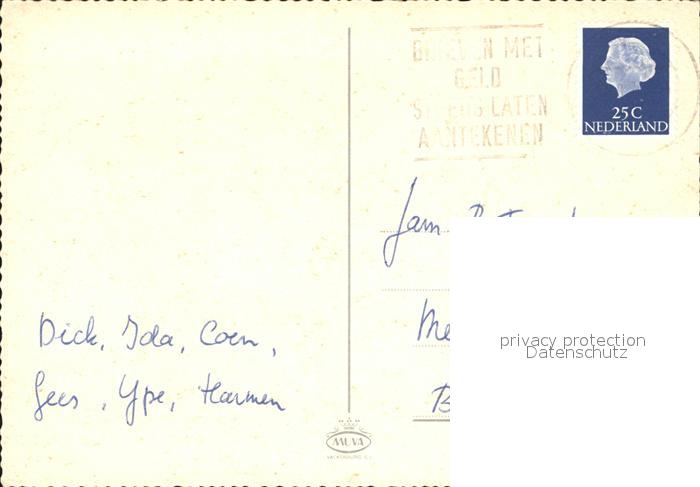 BRIEVEN MET
GELD
STEEDS LATEN
AANTEKENEN
25 C
NEDERLAND
Dick, Ida, Coen,
Gees, Ype, Harmen
MUVA
VALKENBURG
privacy protection
Datenschutz